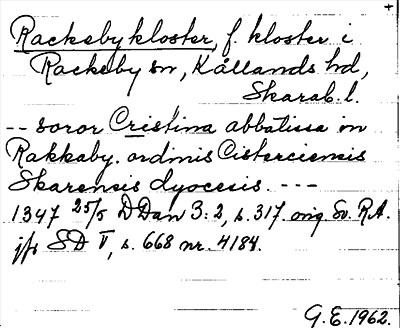 +
Rackeby kloster, f. kloster i
Rackeby sn, Kållands hd,
Skarab. l.
-- soror Cristina abbatissa in
Rakkaby. ordinis Cisterciensis
Skarensis dyocesis. ---
1347 25/5 DDan 3:2, s. 317. orig. Sv. R.A.
jfr SD V, s. 668 nr. 4184.
G.E. 1962.